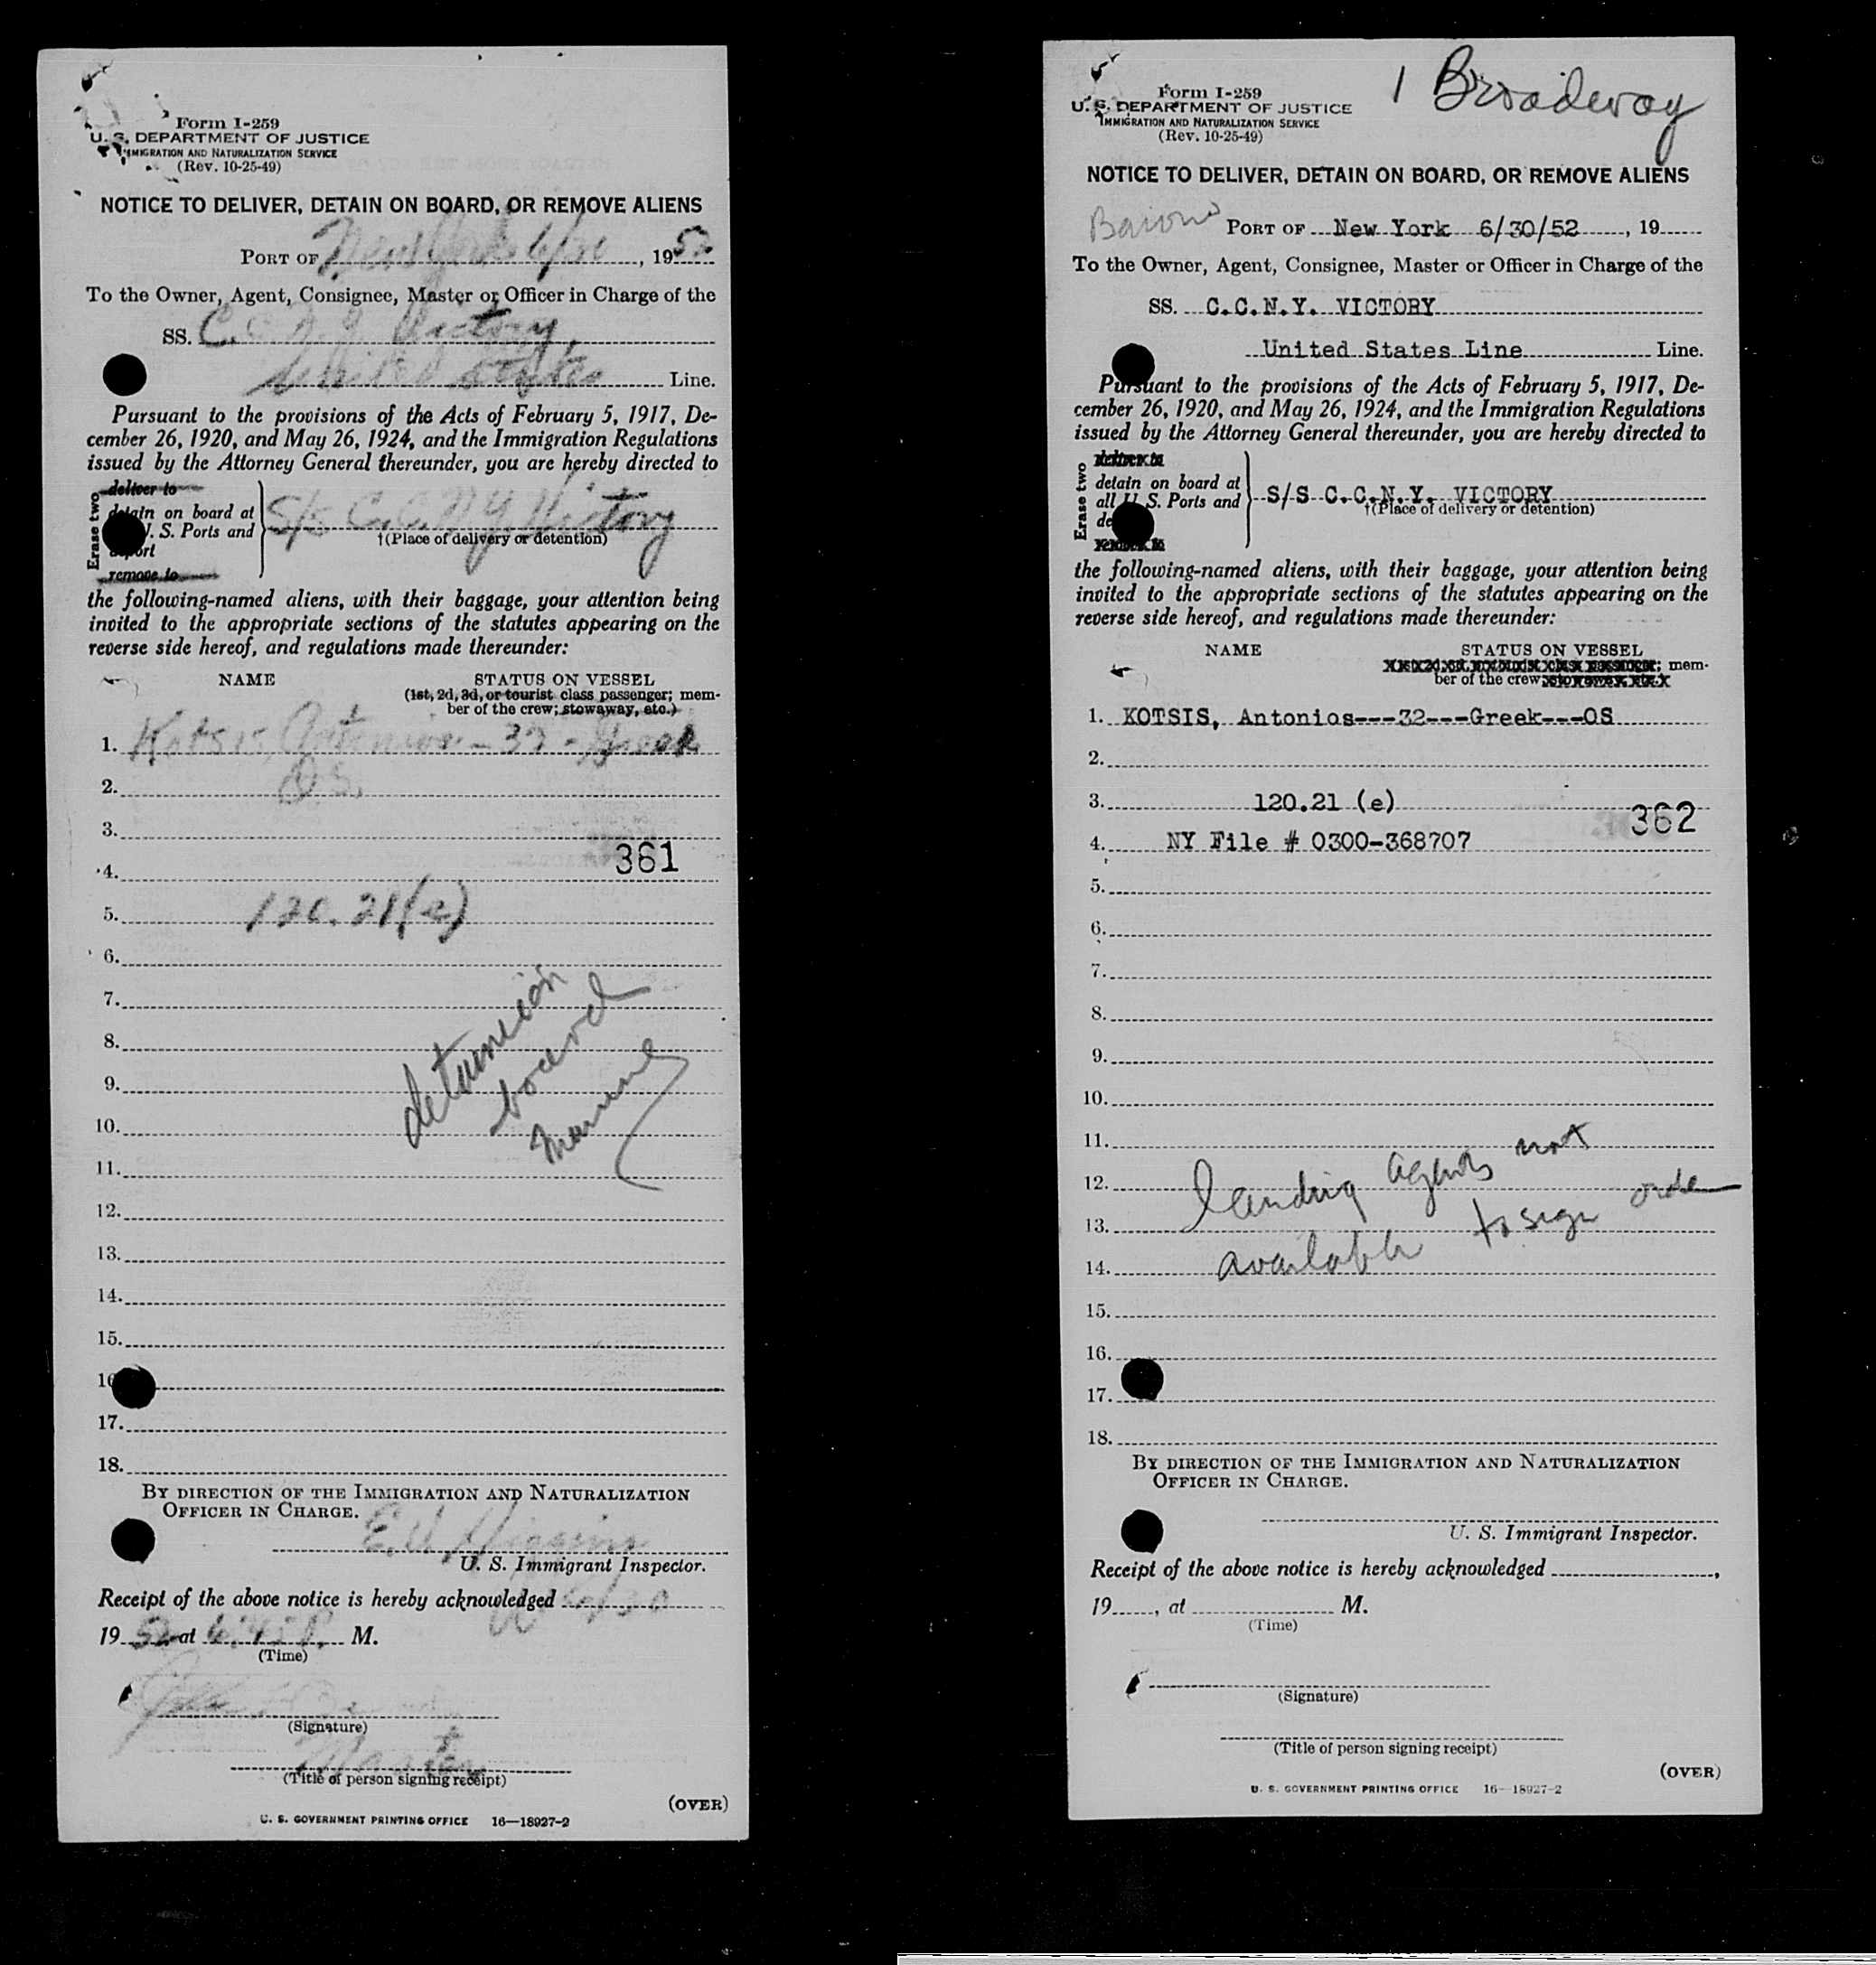 Form I-259
U. S. DEPARTMENT OF JUSTICE
IMMIGRATION AND NATURALIZATION SERVICE
(Rev. 10-25-49)
NOTICE TO DELIVER, DETAIN ON BOARD, OR REMOVE ALIENS
PORT OF New York 6/30, 1952
To the Owner, Agent, Consignee, Master or Officer in Charge of the
SS. C.C.N.Y. Victory
United States Line.
Pursuant to the provisions of the Acts of February 5, 1917, De-
cember 26, 1920, and May 26, 1924, and the Immigration Regulations
issued by the Attorney General thereunder, you are hereby directed to
Erase two
deliver to
detain on board at
U. S. Ports and
deport
remove to
S/S C.C.N.Y. Victory
†(Place of delivery or detention)
the following-named aliens, with their baggage, your attention being
invited to the appropriate sections of the statutes appearing on the
reverse side hereof, and regulations made thereunder:
NAME STATUS ON VESSEL
(1st, 2d, 3d, or tourist class passenger; mem-
ber of the crew; stowaway, etc.)
1. Kotsis, Antonios - 32 - Greek
2. O.S.
3.
361
4.
5. 120.21(e)
6.
7.
8.
9.
10.
board
11.
12.
13.
14.
15.
16
17.
18.
BY DIRECTION OF THE IMMIGRATION AND NATURALIZATION
OFFICER IN CHARGE.
E.W. Higgins
U. S. Immigrant Inspector.
Receipt of the above notice is hereby acknowledged 6/30
19 52 at 6:45 P. M.
(Time)
(Signature)
Master
(Title of person signing receipt)
(OVER)
U. S. GOVERNMENT PRINTING OFFICE 16—18927-2
1 Broadway
Form I-259
U. S. DEPARTMENT OF JUSTICE
IMMIGRATION AND NATURALIZATION SERVICE
(Rev. 10-25-49)
NOTICE TO DELIVER, DETAIN ON BOARD, OR REMOVE ALIENS
PORT OF New York 6/30/52, 19
To the Owner, Agent, Consignee, Master or Officer in Charge of the
SS. C.C.N.Y. VICTORY
United States Line Line.
Pursuant to the provisions of the Acts of February 5, 1917, De-
cember 26, 1920, and May 26, 1924, and the Immigration Regulations
issued by the Attorney General thereunder, you are hereby directed to
Erase two
deliver to
detain on board at
all U. S. Ports and
de
remove to
S/S C.C.N.Y. VICTORY
†(Place of delivery or detention)
the following-named aliens, with their baggage, your attention being
invited to the appropriate sections of the statutes appearing on the
reverse side hereof, and regulations made thereunder:
NAME STATUS ON VESSEL
mem-
ber of the crew
1. KOTSIS, Antonios---32---Greek---OS
2.
3. 120.21 (e)
362
4. NY File # 0300-368707
5.
6.
7.
8.
9.
10.
11.
12.
landing agents not
13.
available to sign order
14.
15.
16.
17.
18.
BY DIRECTION OF THE IMMIGRATION AND NATURALIZATION
OFFICER IN CHARGE.
U. S. Immigrant Inspector.
Receipt of the above notice is hereby acknowledged ,
19 , at M.
(Time)
(Signature)
(Title of person signing receipt)
(OVER)
U. S. GOVERNMENT PRINTING OFFICE 16—18927-2